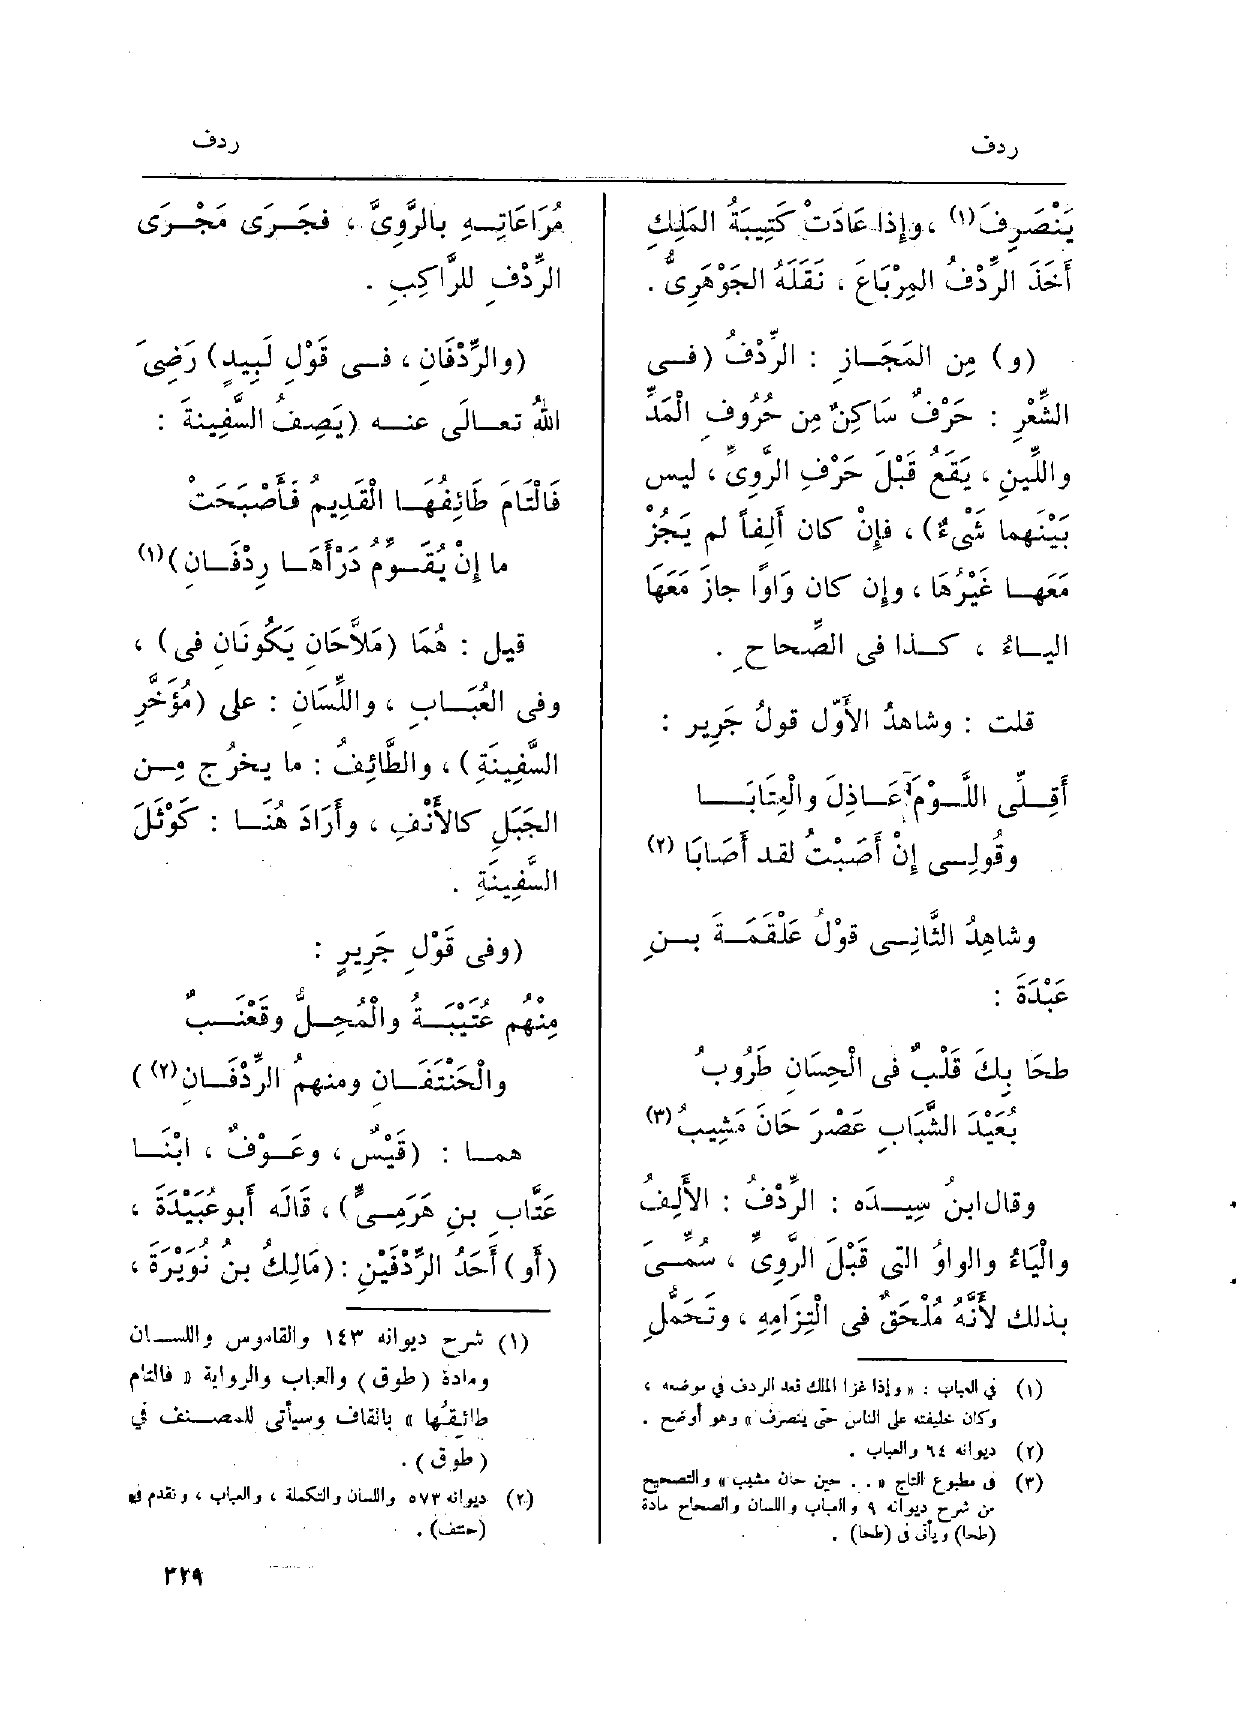 ردف
ردف
يَنْصَرِفَ(١)، وإِذا عَادَتْ كَتِيبَةُ المَلِكِ
أَخَذَ الرِّدْفُ المِرْبَاعَ ، نَقَلَهُ الجَوْهَرِىُّ .
(و) مِن المَجَـازِ : الرِّدْفُ (فـى
الشِّعْرِ : حَرْفٌ سَاكِنٌ مِن حُرُوفِ الْمَدِّ
واللِّينِ ، يَقَعُ قَبْلَ حَرْفِ الرَّوِىِّ ، ليس
بَيْنَهما شَىْءٌ) ، فإِنْ كان أَلِفاً لم يَجُزْ
مَعَهـا غَيْرُهَا ، وإِن كان وَاوًا جازَ مَعَهَا
اليـاءُ ، كـذا فى الصِّحاحِ .
قلت : وشاهدُ الأَوَّل قولُ جَرِير :
أَقِـلِّى اللَّـوْمَ عَـاذِلَ والْعِتَابَـا
وقُولِـى إِنْ أَصَبْتُ لقد أَصَابَا (٢)
وشاهِدُ الثَّانِـى قوْلُ عَلْقَمَـةَ بـنِ
عَبْدَةَ :
طحَا بِكَ قَلْبٌ فى الْحِسَانِ طَرُوبُ
بُعَيْدَ الشَّبَابِ عَصْرَ حَانَ مَشِيبُ(٣)
وقال ابنُ سِيـدَه : الرِّدْفُ : الأَلِفُ
والْيَاءُ والواوُ التى قَبْلَ الرَّوِىِّ ، سُمِّـىَ
بذلك لأَنَّهُ مُلْحَقٌ فى الْتِزَامِهِ ، وتَحَمُّلِ
(١) في العباب : « وإذا غزا الملك قعد الردف في موضعه ،
وكان خليفته على الناس حتى ينصرف » وهو أوضح .
(٢) ديوانه ٦٤ والعباب .
(٣) فى مطبوع التاج « . . حين حان مشيب » والتصحيح
من شرح ديوانه ٩ والعباب واللسان والصحاح مادة
(طحا) ويأتى فى (طحا) .
مُرَاعَاتِـهِ بالرَّوِىِّ ، فجَـرَى مَجْـرَى
الرِّدْفِ للرَّاكِبِ .
(والرِّدْفَانِ ، فـى قَوْلِ لَبِيدٍ) رَضِىَ
اللهُ تعـالَى عنـه (يَصِفُ السَّفِينَةَ :
فَالْتَامَ طَائِفُهَـا الْقَدِيمُ فَأَصْبَحَتْ
ما إِنْ يُقَـوِّمُ دَرْأَهَـا رِدْفَـانِ)(١)
قيل : هُمَا (مَلاَّحَانِ يَكُونَانِ فى) ،
وفى العُبَـابِ ، واللِّسَانِ : على (مُؤَخَّرِ
السَّفِينَةِ) ، والطَّائِفُ : ما يخرُج مِـن
الجَبَلِ كالأَنْفِ ، وأَرَادَ هُنَـا : كَوْثَلَ
السَّفِينَةِ .
(وفى قَوْلِ جَرِيرٍ :
مِنْهُم عُتَيْبَـةُ والْمُحِـلُّ وقَعْنَـبٌ
والْحَنْتَفَـانِ ومنهمُ الرِّدْفَـانِ(٢) )
همـا : (قَيْسٌ ، وعَـوْفٌ ، ابْنَـا
عَتَّابِ بنِ هَرَمِـىٍّ) ، قَالَه أَبو عُبَيْدَةَ ،
(أَو) أَحَدُ الرِّدْفَيْنِ : (مَالِكُ بنُ نُوَيْرَةَ ،
(١) شرح ديوانه ١٤٣ والقاموس واللسـان
ومادة (طوق) والعباب والرواية « فالتام
طائِقُها » بالقاف وسيأتى للمصـنف في
(طوق) .
(٢) ديوانه ٥٧٣ واللسان والتكملة ، والعباب ، وتقدم في
(حنتف) .
٣٢٩